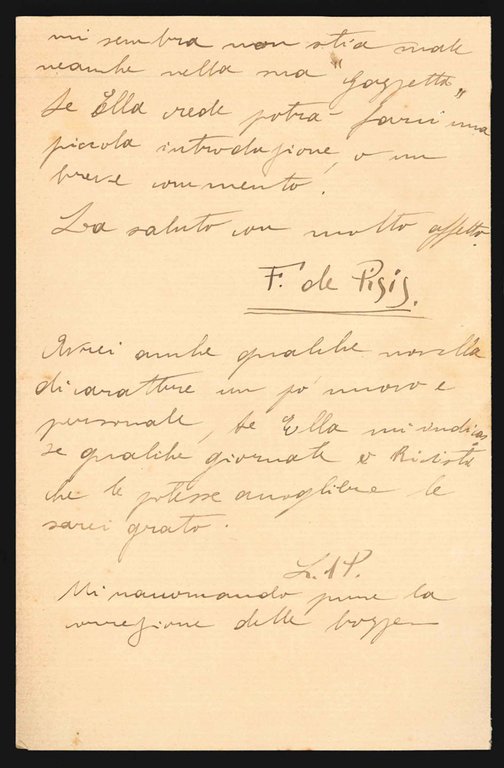 mi sembra non stia male
neanche nella sua "Gazzetta"
Se Ella crede potrà farci una
piccola introduzione, o un
breve commento.
La saluto con molto affetto.
F. de Pisis.
Avrei anche qualche novella
di carattere un pó nuovo e
personale, se Ella mi indicas
se qualche giornale o Rivista
che le potesse accogliere le
sarei grato.
Mi raccomando pure la
correzione delle bozze